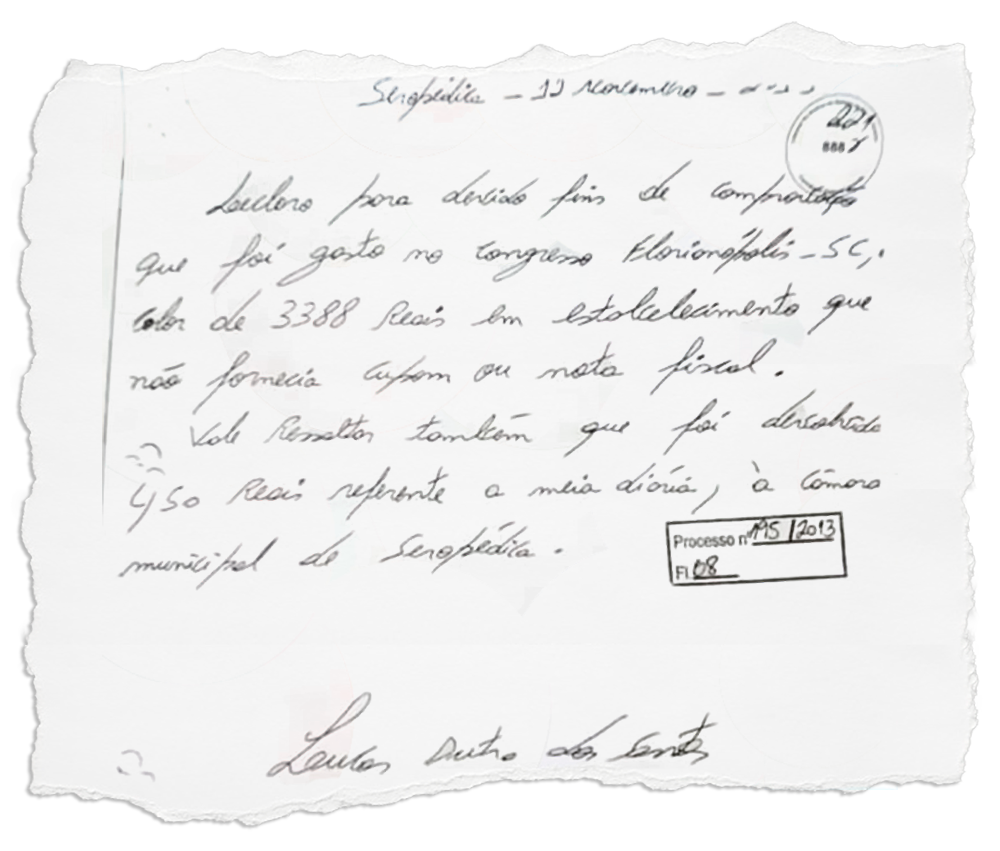 Seropédica - 11 Novembro -
888
Declaro para devido fins de comprovação
que foi gasto no congresso Florianópolis-SC,.
valor de 3388 Reais em estabelecimento que
não fornecia cupom ou nota fiscal.
Vale Ressaltar também que foi devolvido
450 Reais referente a meia diária, à câmara
municipal de Seropédica.
Processo nº 195/2013
Fl. 08
Lucas Dutra dos Santos